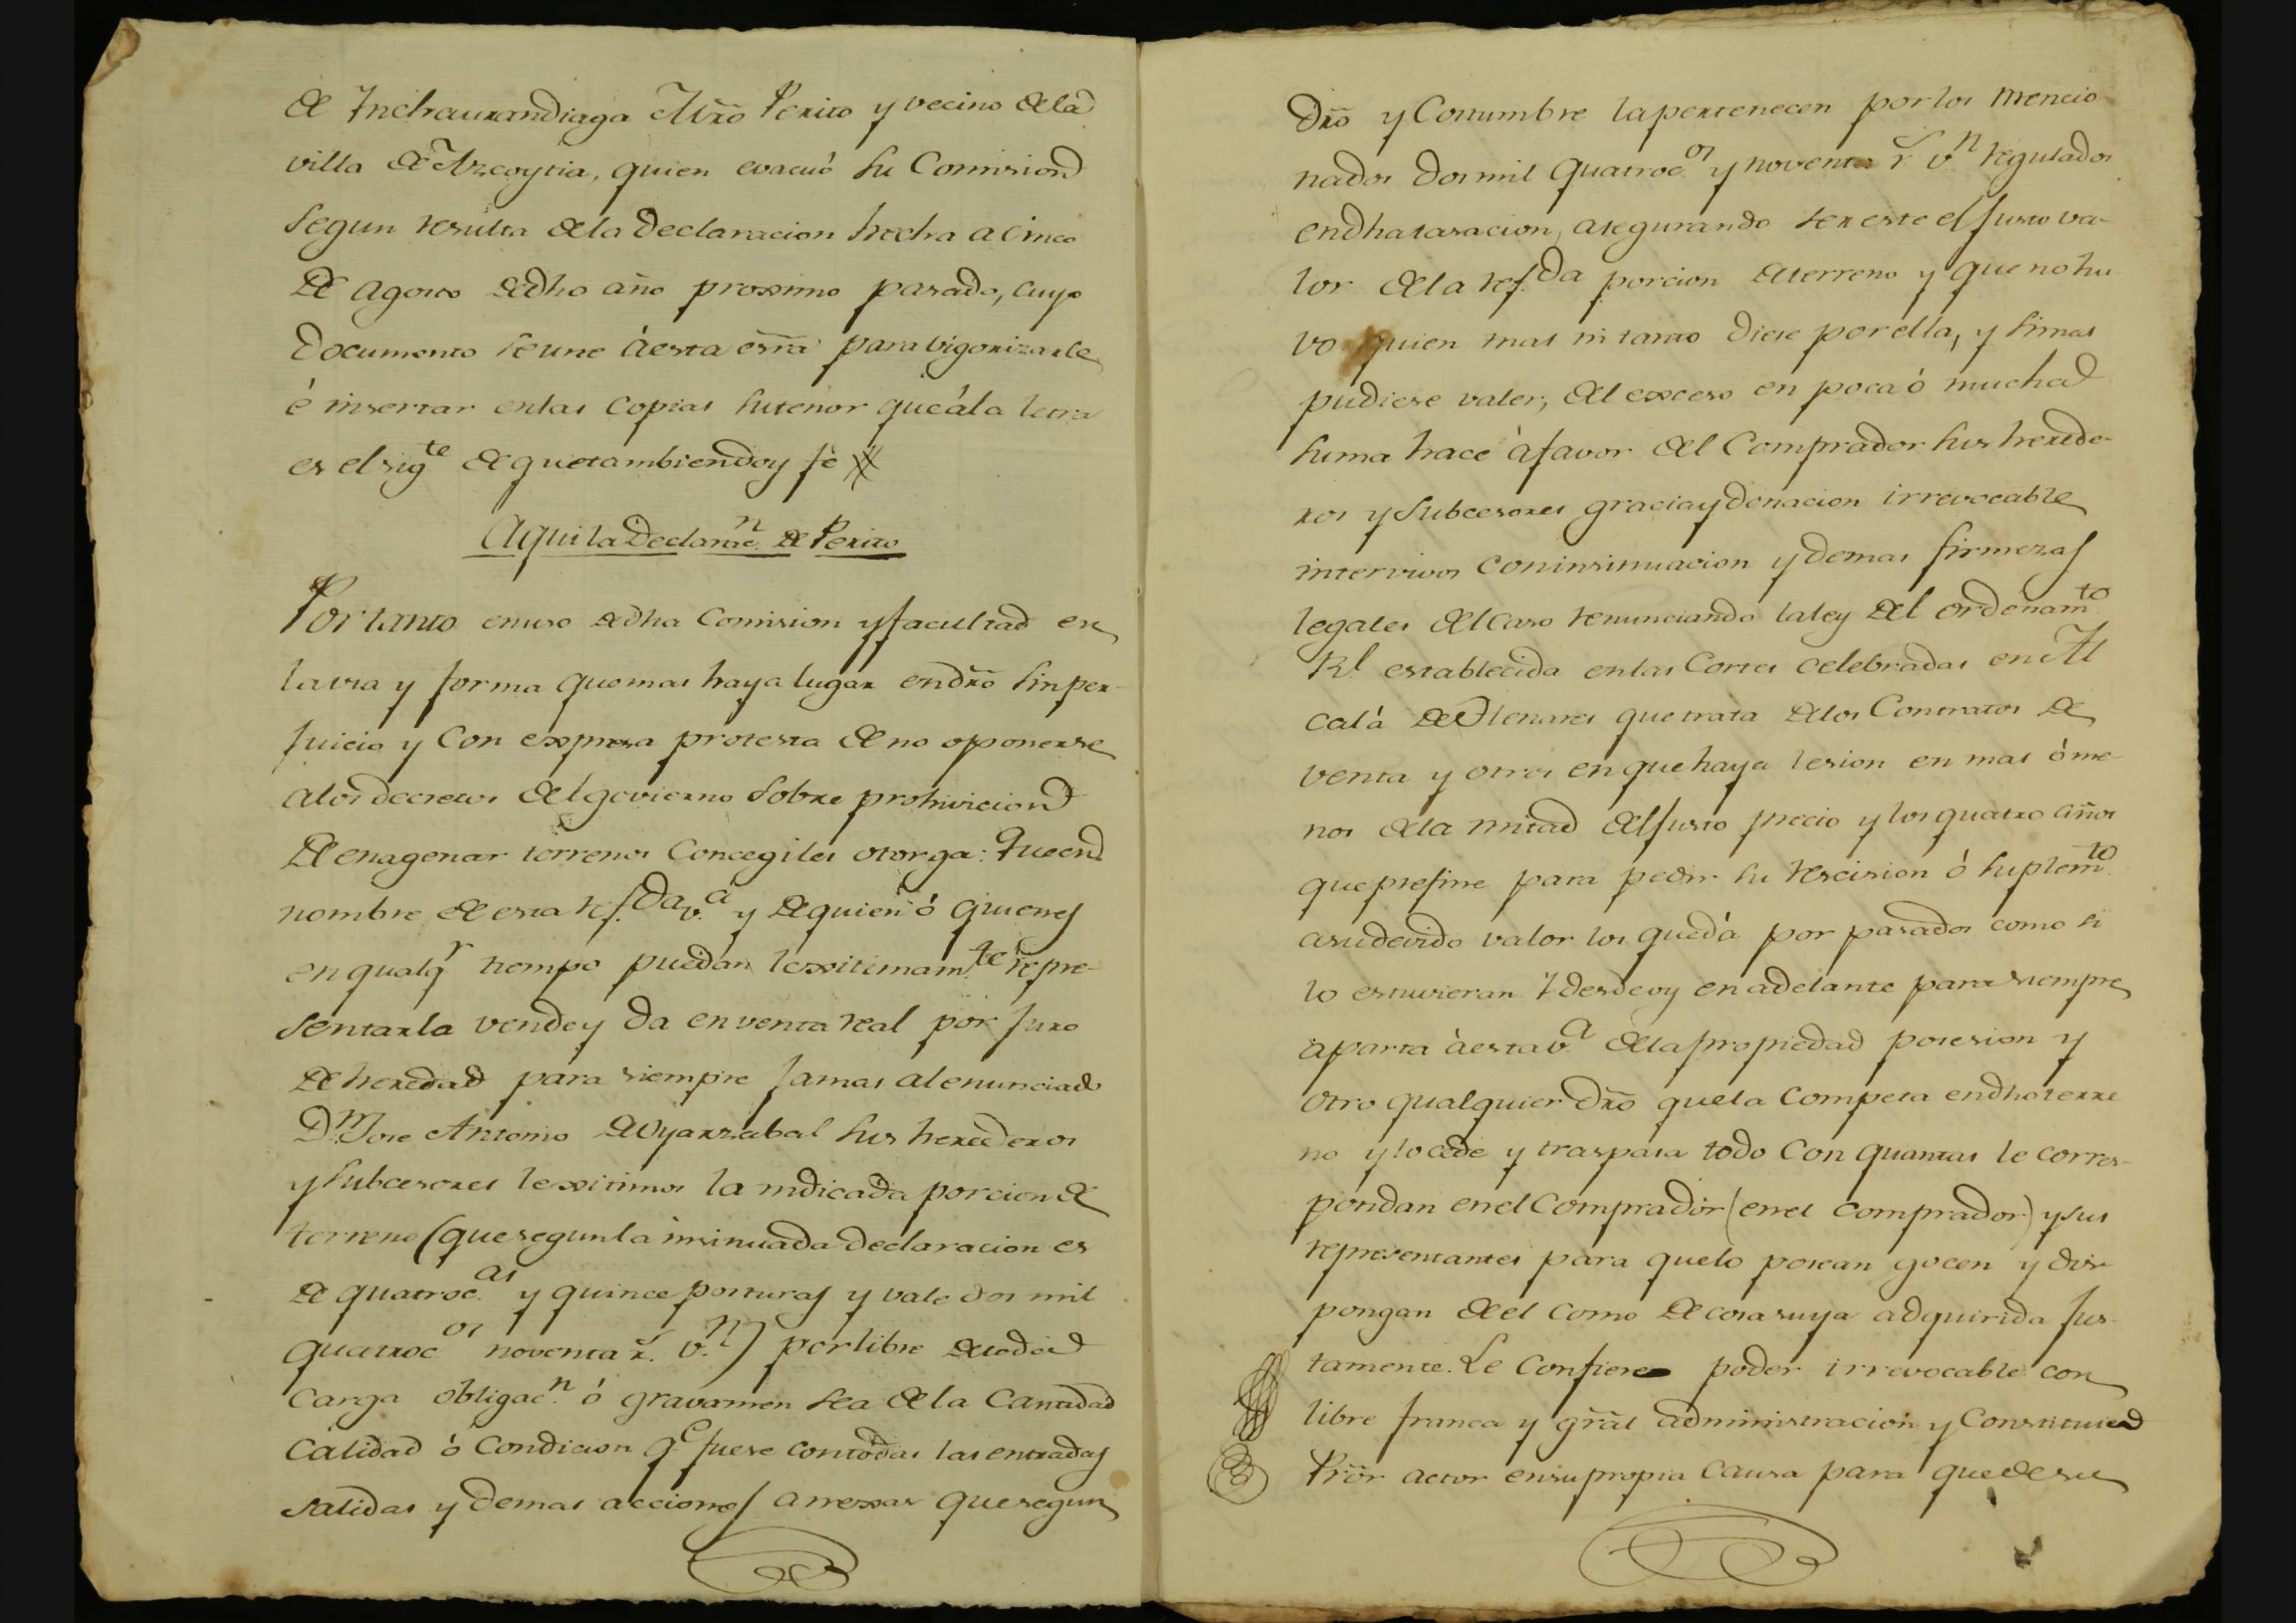 de Ynchaurandiaga Mro Perito y vecino de la
villa de Azcoytia, quien evacuó su Comision
segun resulta de la Declaracion hecha a cinco
de agosto de dho año proximo pasado, cuyo
Documento se une á esta esrra para vigorizarle
é insertar en las Copias su tenor que á la letra
es el sigte de que tambien doy fé
Aqui la Declaracn de Perito
Por tanto en uso de dha Comision y facultad en
la via y forma que mas haya lugar en dro sin per-
juicio y Con expresa protesta de no oponerse
a los decretos del govierno sobre prohivicion
de enagenar terrenos Concegiles otorga: Que en
nombre de esta refda va y de quien ó quienes
en qualqr tiempo puedan lexitimamte repre-
sentarla vende y da en venta real por juro
de heredad para siempre jamas al enunciado
Dn Jose Antonio de Oyarzabal sus herederos
y subcesores lexitimos la indicada porcion de
terreno (que segun la insinuada declaracion es
de quatrocas y quince posturas y vale dos mil
quatrocos noventa rs vn) por libre de toda
Carga obligacn ó gravamen sea de la Cantidad
Calidad ó Condicion qe fuere con todas las entradas
salidas y demas acciones anexas que segun
Dro y Costumbre la pertenecen por los mencio-
nados dos mil quatrocos y noventa rs vn regulados
en dha tasacion, asegurando ser este el justo va-
lor de la refda porcion de terreno y que no hu
vo quien mas ni tanto diese por ella, y si mas
pudiese valer, del exceso en poca ó mucha
suma hace á favor del Comprador sus herede-
ros y subcesores gracia y donacion irrevocable
intervivos con insinuacion y demas firmezas
legales del caso renunciando la ley del ordenamto
Rl establecida en las Cortes celebradas en Al
calá de Henares que trata de los Contratos de
venta y otros en que haya lesion en mas ó me-
nos de la mitad del justo precio y los quatro años
que prefine para pedir su rescision ó suplemto
a su devido valor los que dá por pasados como si
lo estuvieran Y desde oy en adelante para siempre
aparta á esta va de la propiedad posesion y
otro qualquier dro que la Competa en dho terre
no y lo cede y traspasa todo Con quantas le corres-
pondan en el Comprador (en el comprador) y sus
representantes para que lo posean gocen y dis-
pongan de el como de cosa suya adquirida jus-
tamente. Le Confiere poder irrevocable con
libre franca y gral administracion y Constituie
Pror actor en su propia Causa para que de su